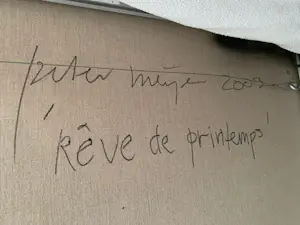 peter meijer 2003
'Rêve de printemps'